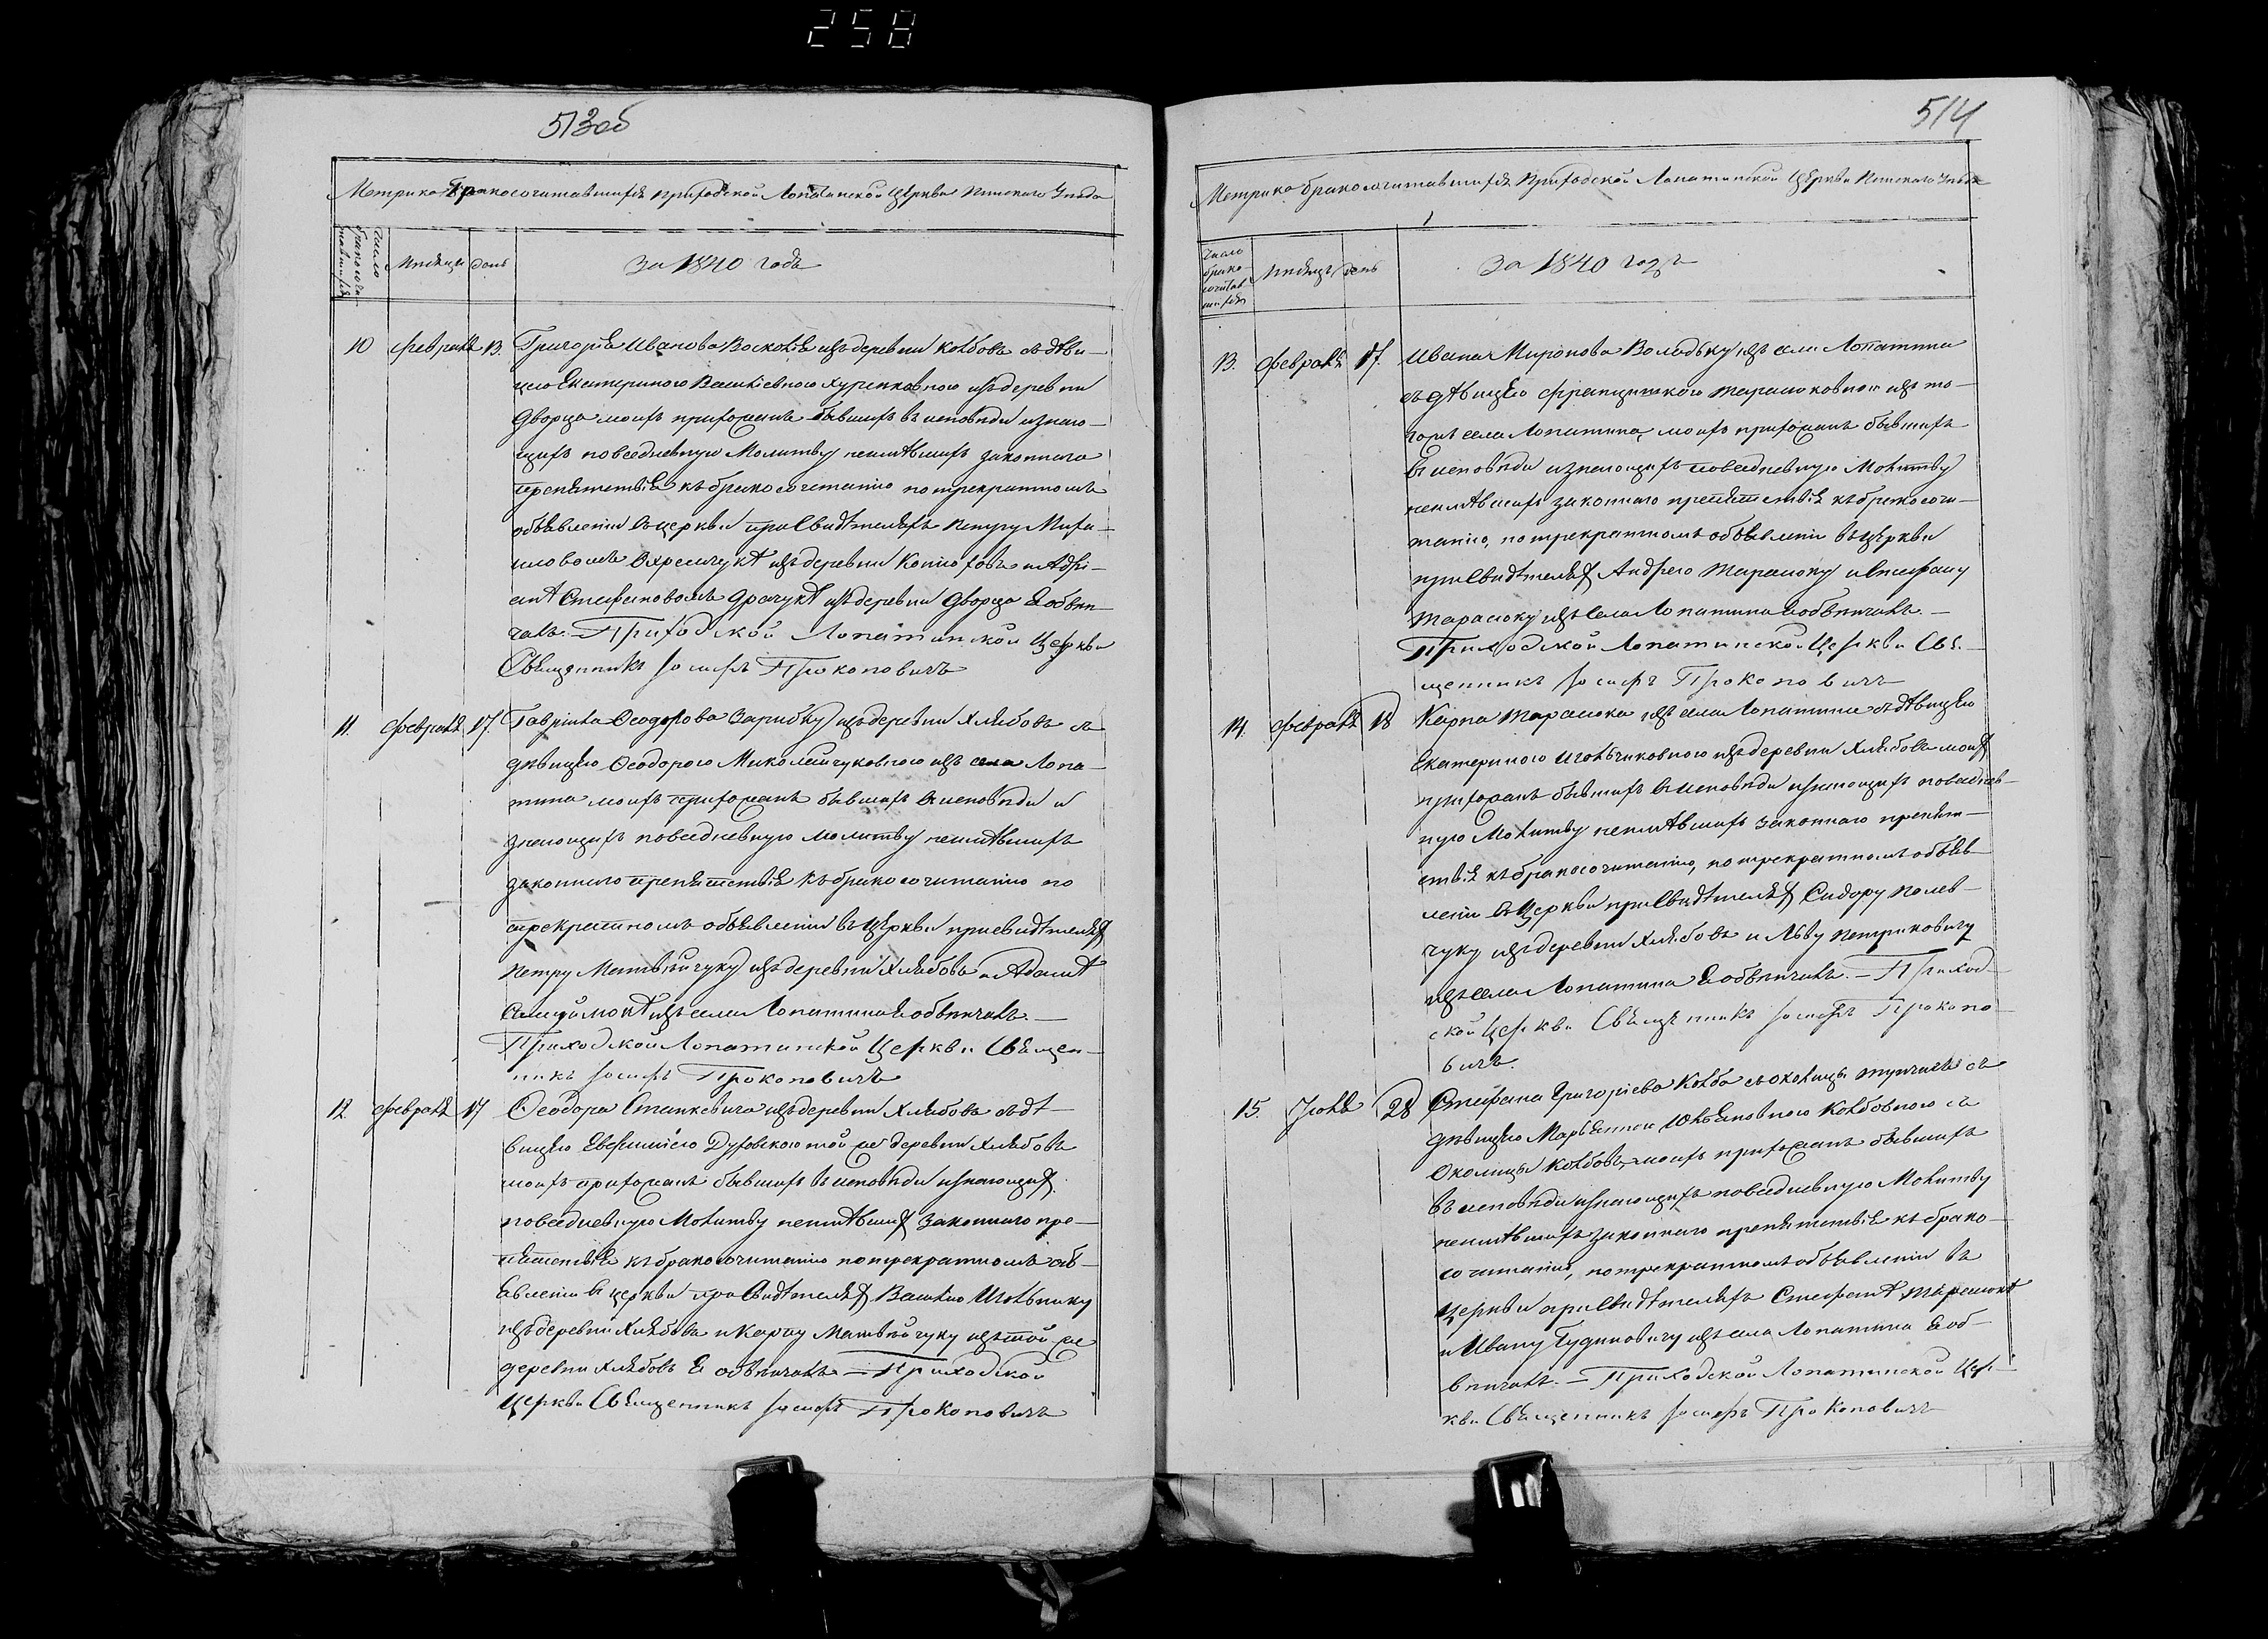 258
513об
Метрика бракосочитавшихся Приходской Лопатинской Церкви Пинскаго Уезда
Число бракосочитавшихся
месяцъ
день
За 1840 годъ
10 февраля 13. Григорія Иванова изъ деревни Колбовъ съ деви-
цею Екатериною изъ деревни
Дворца моихъ прихожанъ бывшихъ въ исповѣди и знаю-
щихъ повседневную Молитву неимѣвшихъ законнаго
препятствія къ бракосочетанію по трекратномъ
объявленіи въ церкви при Свидѣтеляхъ Петру Миха-
иловомъ изъ деревни и Адрі-
анѣ Стефановомъ Драчукѣ изъ деревни Дворца я обвѣн-
чалъ. — Приходской Лопатинской Церкви
Священникъ Іосифъ Прокоповичъ
11. февраля 17. Гавріила Ѳеодорова Зарибку изъ деревни Хлябовъ съ
дѣвицею Ѳеодорою Миколайчуковною изъ села Лопа-
тина моихъ прихожанъ бывшихъ въ исповѣди и
знающихъ повседневную молитву неимѣвшихъ
законнаго препятствія къ бракосочитанію по
трекратномъ объявленіи въ Церкви при свидѣтелях
Петру Матвѣйчуку изъ деревни Хлябовъ и Адамѣ
изъ села Лопатина я обвѣнчалъ. —
Приходской Лопатинской Церкви Священ-
никъ Іосифъ Прокоповичъ
12 февраля 17 Ѳеодора Станкевича изъ деревни Хлябовъ съ дѣ-
вицею Духовскою той же деревни Хлябовъ
моихъ прихожанъ бывшихъ въ исповѣди и знающих
повседневную Молитву неимѣвших законнаго пре-
пятствія къ бракосочитанію по трекратномъ объ-
явленіи в церкви при Свидѣтелях Василію Игольнику
изъ деревни Хлябовъ и Карпу Матвѣйчуку изъ той же
деревни Хлябовъ я обвѣнчалъ — Приходской
Церкви Священникъ Іосифъ Прокоповичъ
514
Метрика бракосочитавшихся Приходской Лопатинской Церкви Пинскаго Уезда
Число
брако
сочитав
шихся
месяцъ
день
За 1840 годъ
13. февраля 17. Ивана Миронова Володьку изъ села Лопатина
съ дѣвицею Францишкою Тарасюковною изъ то-
гожъ села Лопатина, моихъ прихожанъ бывшихъ
в исповѣди и знающихъ повседневную Молитву
неимѣвшихъ законнаго препятствія къ бракосочи-
танію, по трекратномъ объявленіи въ Церкви
при Свидѣтелях Андрею Тарасюку и Стефану
Тарасюку изъ Села Лопатина я обвѣнчалъ. —
Приходской Лопатинской Церкви Свя-
щенникъ Іосифъ Прокоповичъ
14. февраля 18 Карпа Тарасюка изъ села Лопатина съ дѣвицею
Екатериною изъ деревни Хлябовъ моих
прихожанъ бывшихъ в исповѣди и знающихъ повседнев-
ную Молитву неимѣвшихъ законнаго препят-
ствія къ бракосочитанію, по трекратномъ объяв-
леніи въ Церкви при Свидѣтелях Сидору Полев-
чуку изъ деревни Хлябовъ и Льву Петриковичу
изъ села Лопатина я обвѣнчалъ. — Приход-
ской Церкви Священникъ Іосифъ Прокопо-
вичъ.
15. Іюля 28 Стефана Григоріева Колба съ околицы съ
дѣвицею Марьянною Юльяновною Колбовною съ
Околицы Колбовъ, моихъ прихожанъ бывшихъ
въ исповѣди и знающихъ повседневную Молитву
неимѣвшихъ законнаго препятствія къ брако-
сочитанію, по трекратномъ объявленіи въ
Церкви при Свидѣтеляхъ Стефанѣ Тарасюкѣ
и Ивану Гудиновичу изъ села Лопатина я об-
вѣнчалъ. — Приходской Лопатинской Цер-
кви Священникъ Іосифъ Прокоповичъ